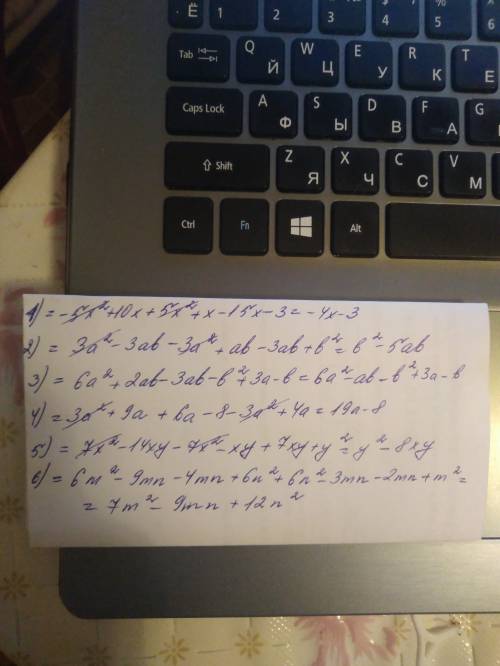 Ё 1 2 3 4 5 6
Tab Q Й W Ц E У R К T Е
Caps Lock A Ф S Ы D В F А G
Shift Z Я X Ч C С V М
Ctrl Fn Alt
1) = -5x²+10x+5x²+x-15x-3=-4x-3
2) = 3a²-3ab-3a²+ab-3ab+b²=b²-5ab
3) = 6a²+2ab-3ab-b²+3a-b=6a²-ab-b²+3a-b
4) = 3a²+9a+6a-8-3a²+4a=19a-8
5) = 7x²-14xy-7x²-xy+7xy+y²=y²-8xy
6) = 6m²-9mn-4mn+6n²+6n²-3mn-2mn+m²=
= 7m²-9mn+12n²